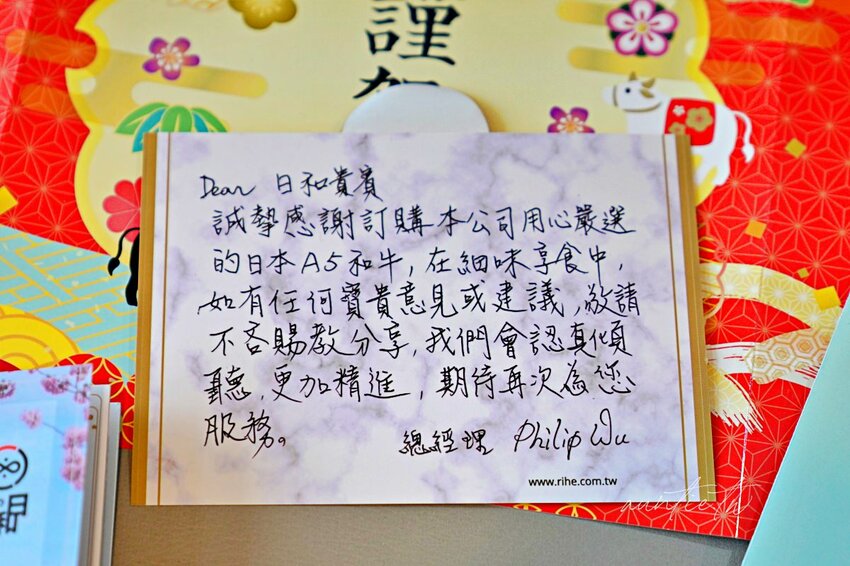 謹
賀
Dear 日和貴賓
誠摯感謝訂購本公司用心嚴選
的日本A5和牛,在細味享食中,
如有任何寶貴意見或建議,敬請
不吝賜教分享,我們會認真傾
聽,更加精進,期待再次為您
服務。
總經理 Philip Wu
www.rihe.com.tw